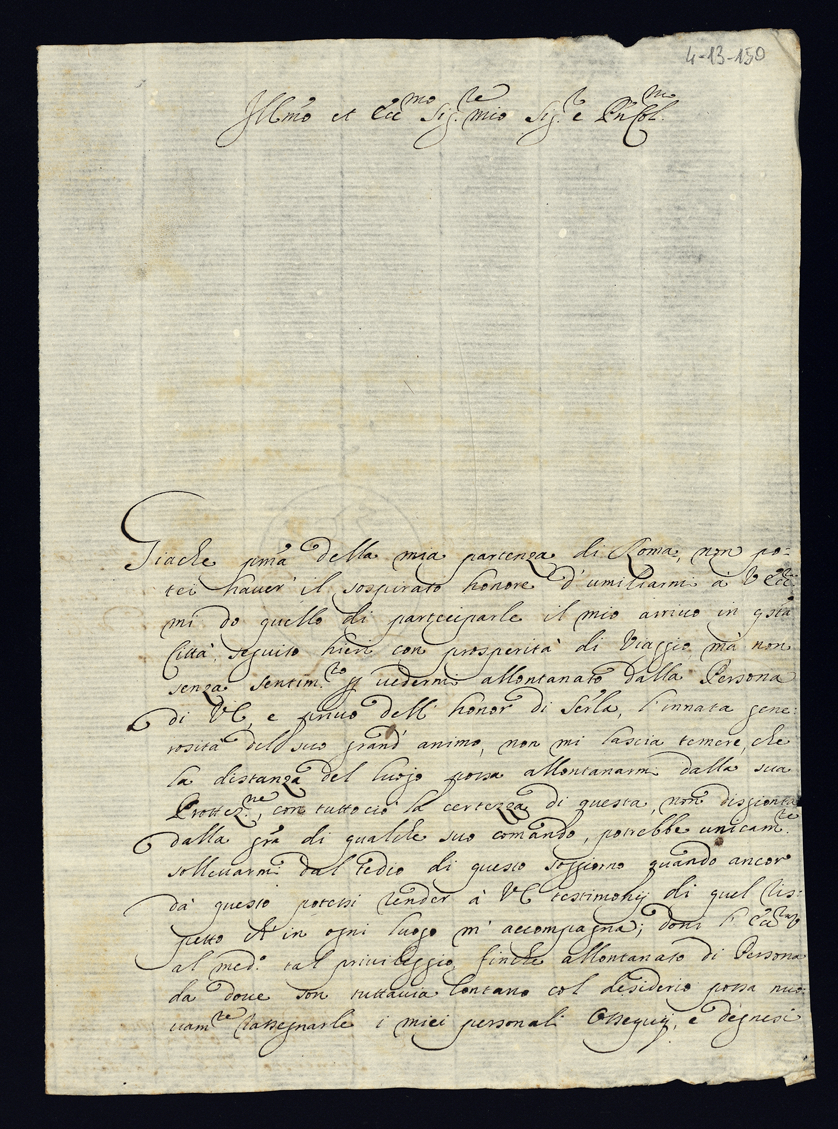 4-13-150
Ill.mo et Ecc.mo Sig.re mio Sig.r e P.rn Col.mo
Giache p.ma della mia partenza di Roma, non po=
tei hauer il sospirato honore d'umiliarmi à V Ecc.za
mi do quello di parteciparle il mio arriuo in q.sta
Città, seguito hieri con prosperità di Viaggio, mà non
senza sentim.to p vedermi allontanato dalla Persona
di VE, e priuo dell' honor di Ser.la, l'innata gene=
rosità del suo grand' animo, non mi lascia temere, che
la distanza del luogo possa allontanarmi dalla sua
Protez.ne, con tutto ciò la certezza di questa, non disgionta
dalla gra di qualche suo comando, potrebbe unicam.te
solleuarmi dal tedio di questo soggiorno quando ancor
da questo potessi render à VE testimonij di quel ris=
petto ch' in ogni luogo m' accompagna; doni l' Ecc.za V
al med.o tal priuileggio, finche allontanato di Persona
da doue son tuttauia lontano col desiderio possa nuo=
uam.te rassegnarle i miei personali Ossequij, e degnesi